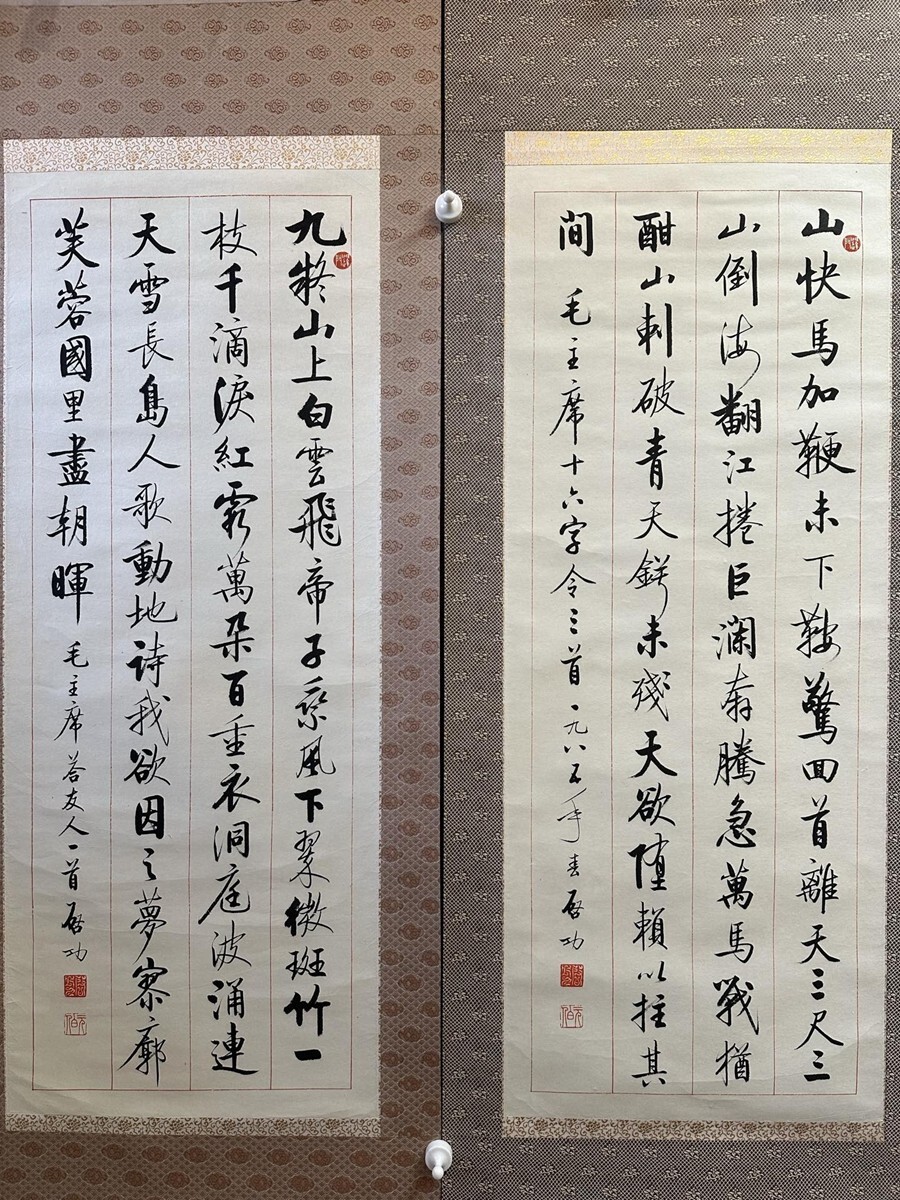 山快馬加鞭未下鞍驚回首離天三尺三
山倒海翻江捲巨澜奔騰急萬馬戰猶
酣山刺破青天鍔未殘天欲墮賴以拄其
间 毛主席十六字令三首 一九八五年春 啓功
九嶷山上白雲飛帝子乘風下翠微斑竹一
枝千滴淚紅霞萬朵百重衣洞庭波涌連
天雪長島人歌動地詩我欲因之夢寥廓
芙蓉國里盡朝暉 毛主席答友人一首 啓功